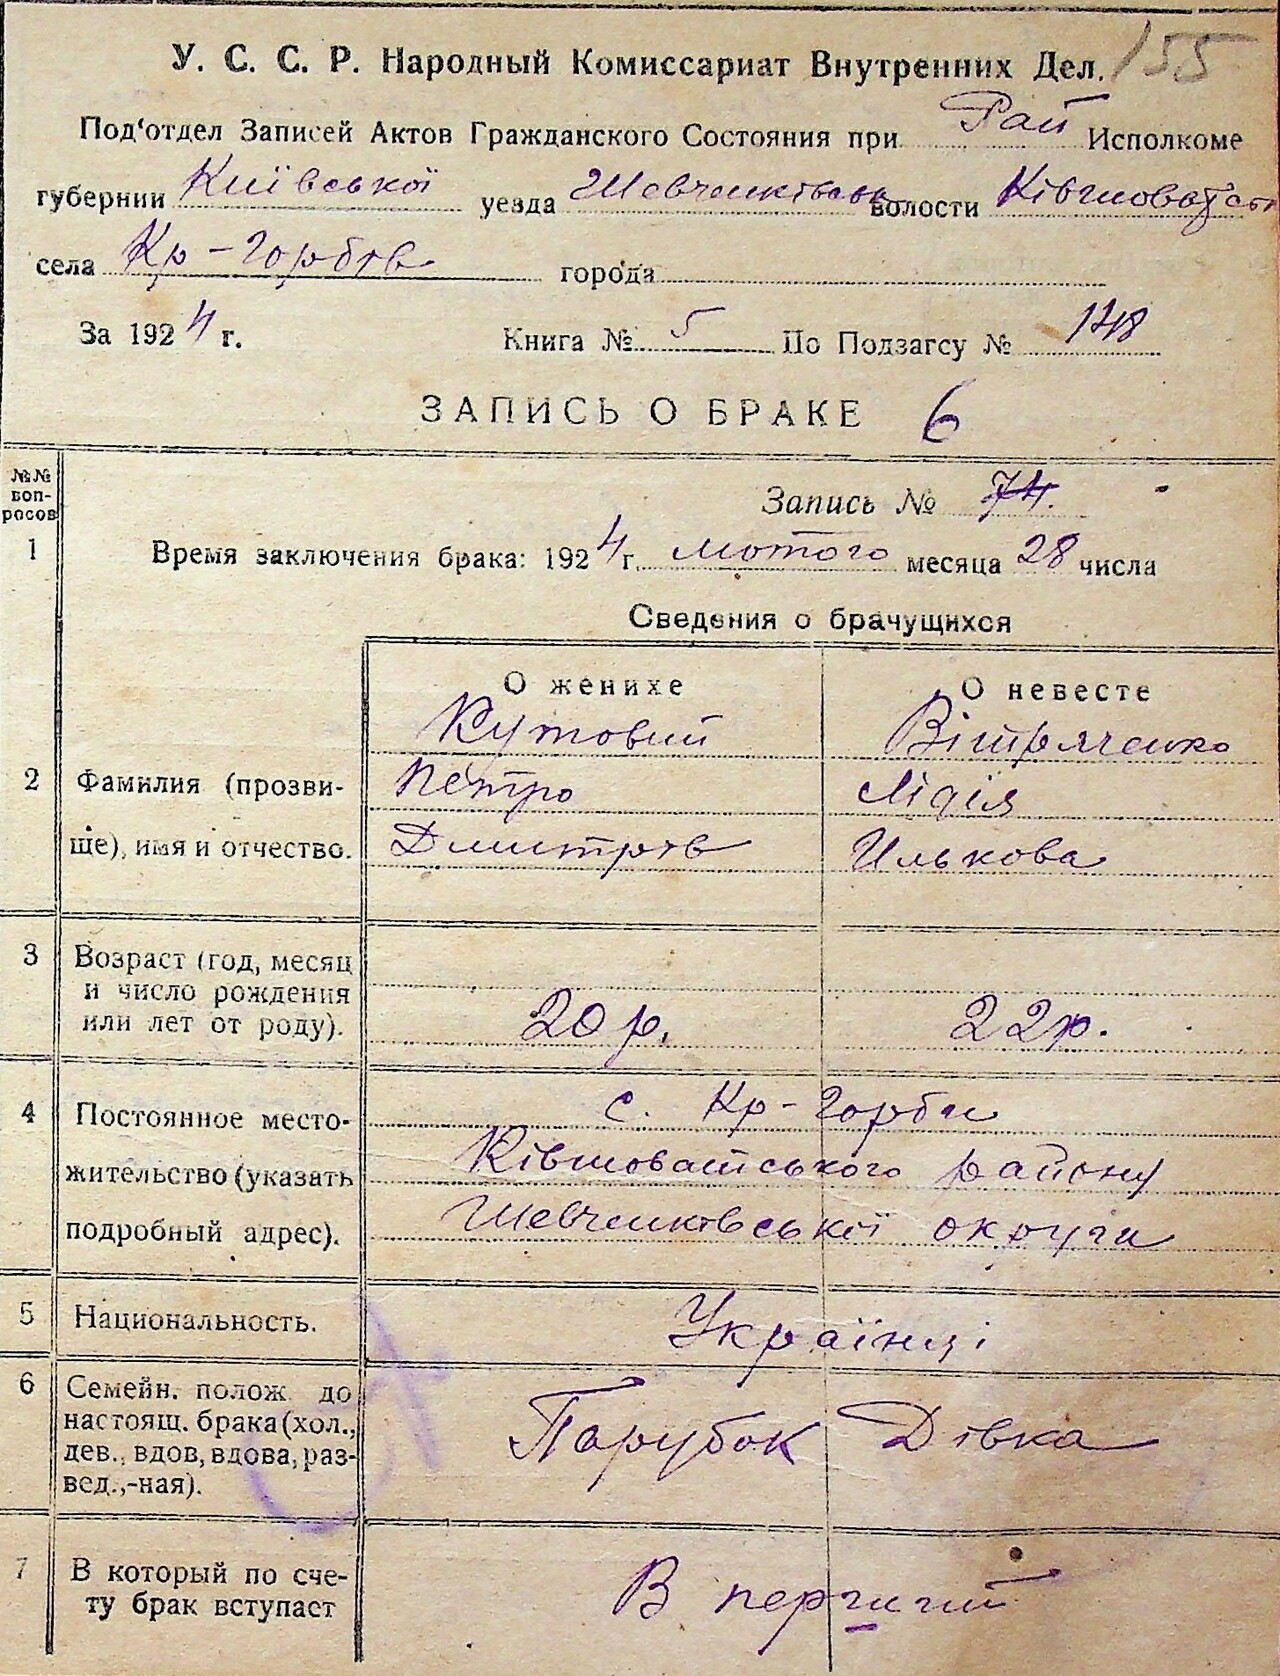 155
У. С. С. Р. Народный Комиссариат Внутренних Дел.
Под‘отдел Записей Актов Гражданского Состояния при Рай Исполкоме
губернии Київської уезда Шевченківськ волости Ківшоватськ
села Кр-Горбів города
За 1924 г. Книга № 5 По Подзагсу № 148
ЗАПИСЬ О БРАКЕ 6
№№ воп-росов
Запись № 74.
1 Время заключения брака: 1924 г. лютого месяца 28 числа
Сведения о брачущихся
О женихе О невесте
Кутовий Вітряченко
2 Фамилия (прозви- Петро Лідія
ще), имя и отчество. Дмитрів Илькова
3 Возраст (год, месяц
и число рождения
или лет от роду). 20 р. 22 р.
4 Постоянное место- с. Кр-Горби
жительство (указать Ківшоватського району
подробный адрес). Шевченківської округи
5 Национальность. Українці
6 Семейн. полож до
настоящ. брака (хол., Парубок Дівка
дев., вдов, вдова, раз-
вед.,-ная).
7 В который по сче- В перший
ту брак вступает